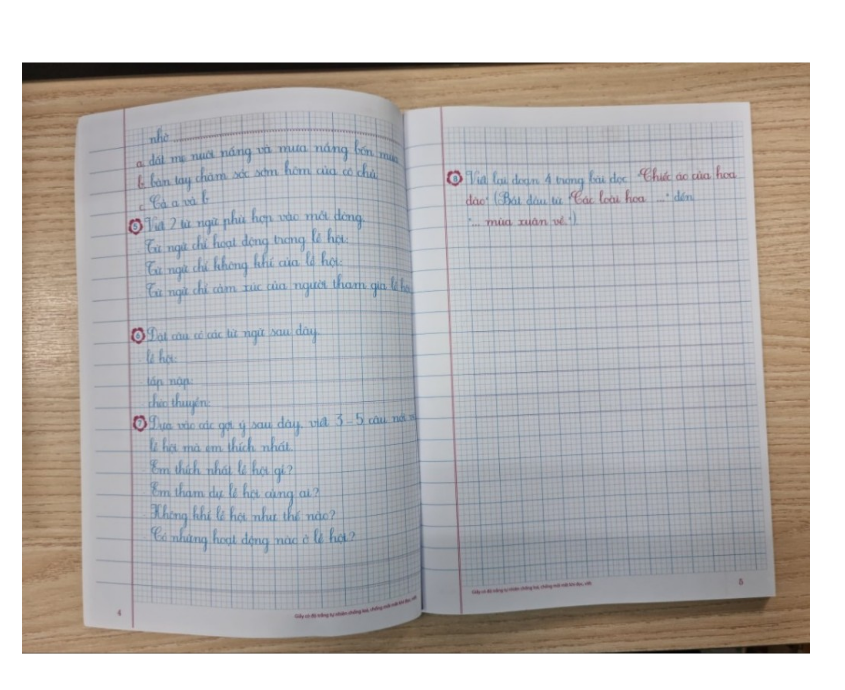 nhờ
a. đất mẹ nuôi nắng và mưa nắng bốn mùa
b. bàn tay chăm sóc sớm hôm của cô chú
c. Cả a và b
5 Viết 2 từ ngữ phù hợp vào mỗi dòng.
Từ ngữ chỉ hoạt động trong lễ hội:
Từ ngữ chỉ không khí của lễ hội:
Từ ngữ chỉ cảm xúc của người tham gia lễ hội
6 Đặt câu có các từ ngữ sau đây.
lễ hội:
tấp nập:
chiếc thuyền:
7 Dựa vào các gợi ý sau đây, viết 3 - 5 câu nói
lễ hội mà em thích nhất.
Em thích nhất lễ hội gì?
Em tham dự lễ hội cùng ai?
Không khí lễ hội như thế nào?
Có những hoạt động nào ở lễ hội?
4
Giấy có độ trắng tự nhiên chống lóa, chống mỏi mắt khi đọc, viết.
8 Viết lại đoạn 4 trong bài đọc "Chiếc áo của hoa
đào" (Bắt đầu từ "Các loài hoa ..." đến
"... mùa xuân về".)
Giấy có độ trắng tự nhiên chống lóa, chống mỏi mắt khi đọc, viết.
5